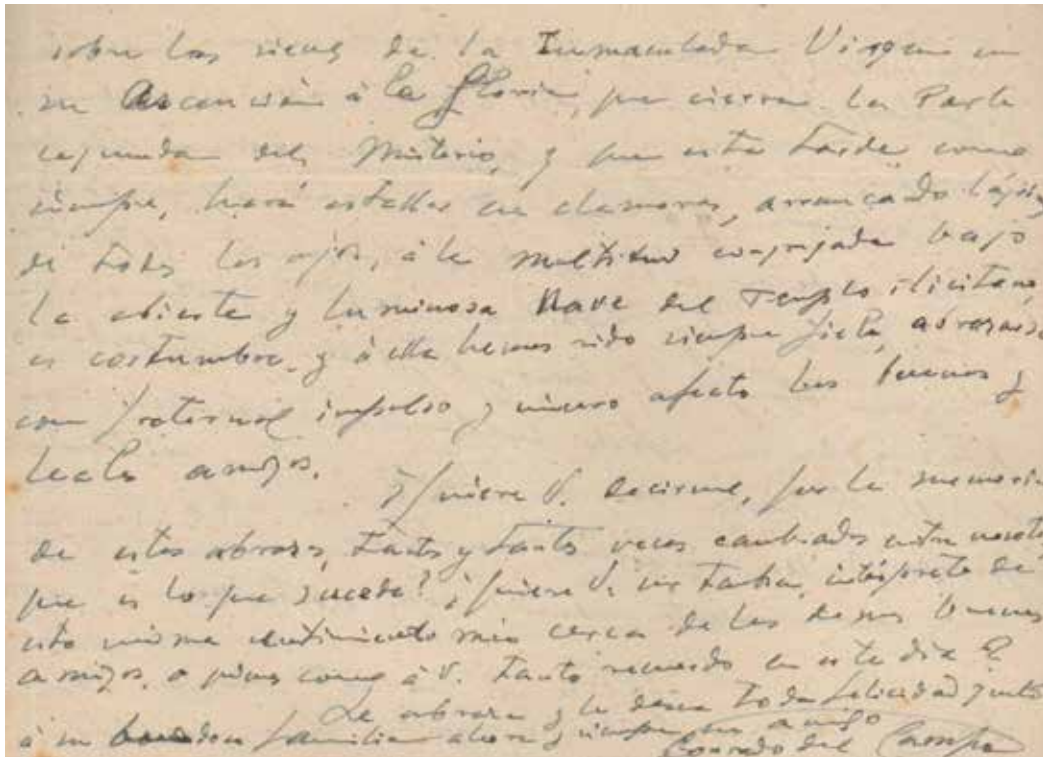 sobre las sienes de la Inmaculada Virgen en
su Ascensión à la Gloria, que cierra la Parte
segunda del Misterio, y que esta tarde, como
siempre, hará estallar en clamores, arrancado lágrimas
de todos los ojos, à la multitud congregada bajo
la abierta y luminosa Nave del Templo ilicitano,
es costumbre, y à ella hemos sido siempre fieles, abrazarse
con fraternal impulso y sincero afecto los buenos y
leales amigos.
¿Quiere V. decirme, por la memoria
de estos abrazos, tantas y tantas veces cambiados entre nosotros,
que es lo que sucede? ¿Quiere V. ser intérprete de
este mismo sentimiento mio cerca de los demas buenos
amigos, a quienes como à V. tanto recuerdo en este dia?
Le abraza y le desea toda felicidad junto
à su familia ahora y siempre su amigo
Conrado del Campo